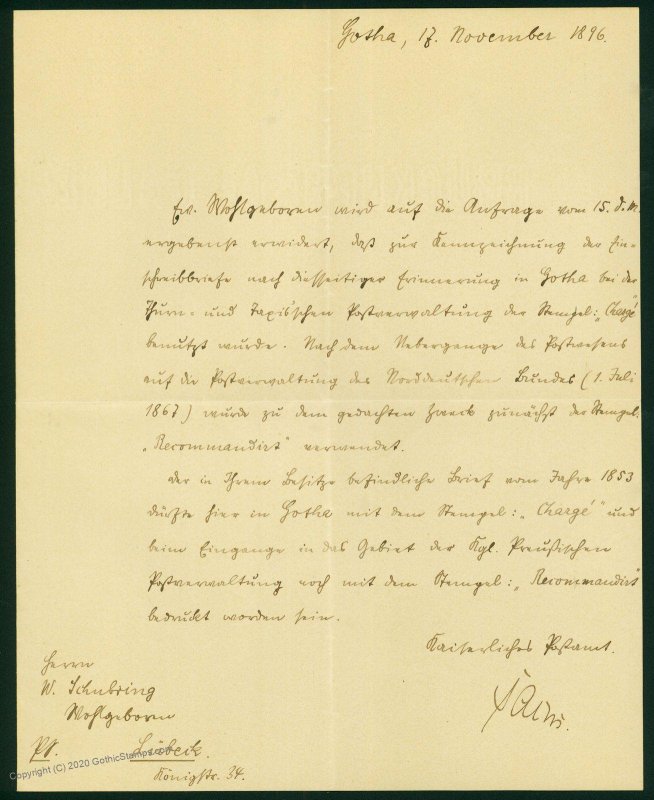 Gotha, 17. November 1896.
Ew. Wohlgeboren wird auf die Anfrage vom 15. d. M.
ergebenst erwidert, daß zur Kennzeichnung der Ein-
schreibbriefe nach diesseitiger Erinnerung in Gotha bei der
Thurn- und Taxis'schen Postverwaltung der Stempel: „Chargé“
benutzt wurde. Nach dem Uebergange des Postwesens
auf die Postverwaltung des Norddeutschen Bundes (1. Juli
1867) wurde zu dem gedachten Zweck zunächst der Stempel:
„Recommandirt“ verwendet.
Der in Ihrem Besitze befindliche Brief vom Jahre 1853
dürfte hier in Gotha mit dem Stempel: „Chargé“ und
beim Eingange in das Gebiet der Kgl. Preußischen
Postverwaltung noch mit dem Stempel: „Recommandirt“
bedruckt worden sein.
Kaiserliches Postamt.
Herrn
W. Schubring
Wohlgeboren
Lübeck.
Königstr. 34.
Copyright (C) 2020 GothicStamps.com